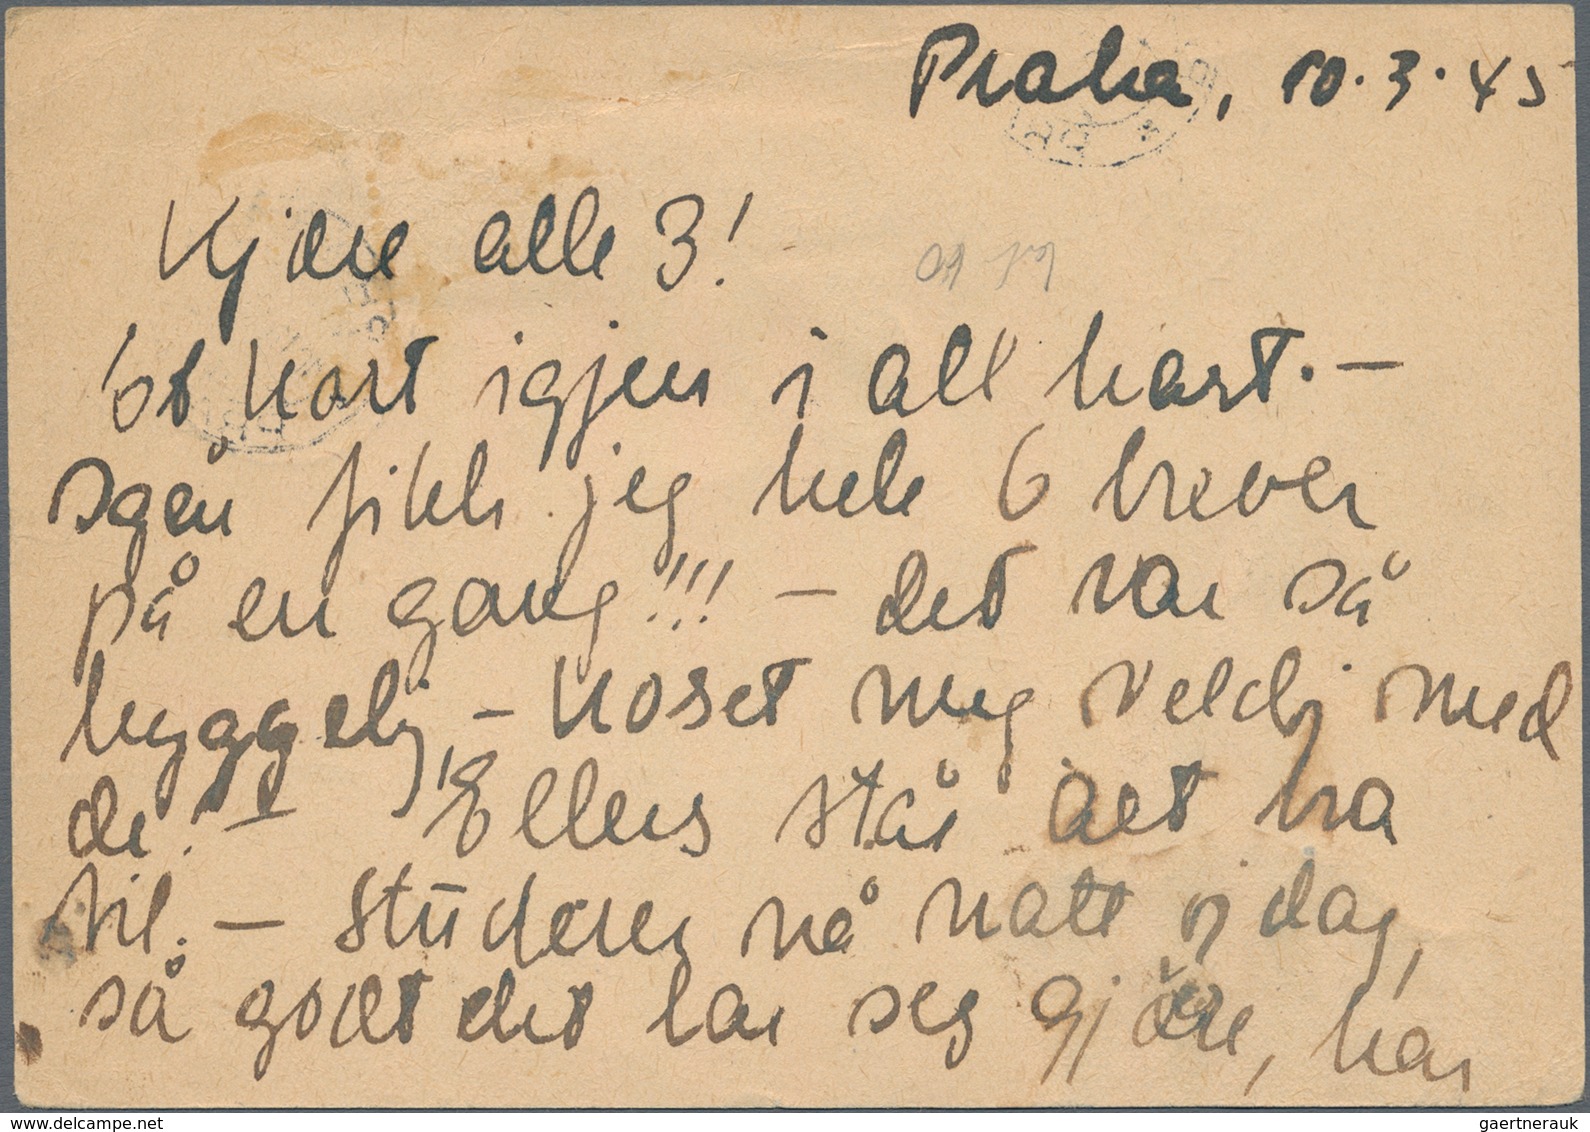 Praha, 10.3.45
Kjære alle 3!
kort igjen i all hast. -
Igår fikk jeg hele 6 brever
på en gang!!! - det var så
hyggelij, - koset meg veldij med
de! - Ellers står det bra
til. - Studerer nå natt og dag,
så godt det lar seg gjøre, har
gaertnerauk